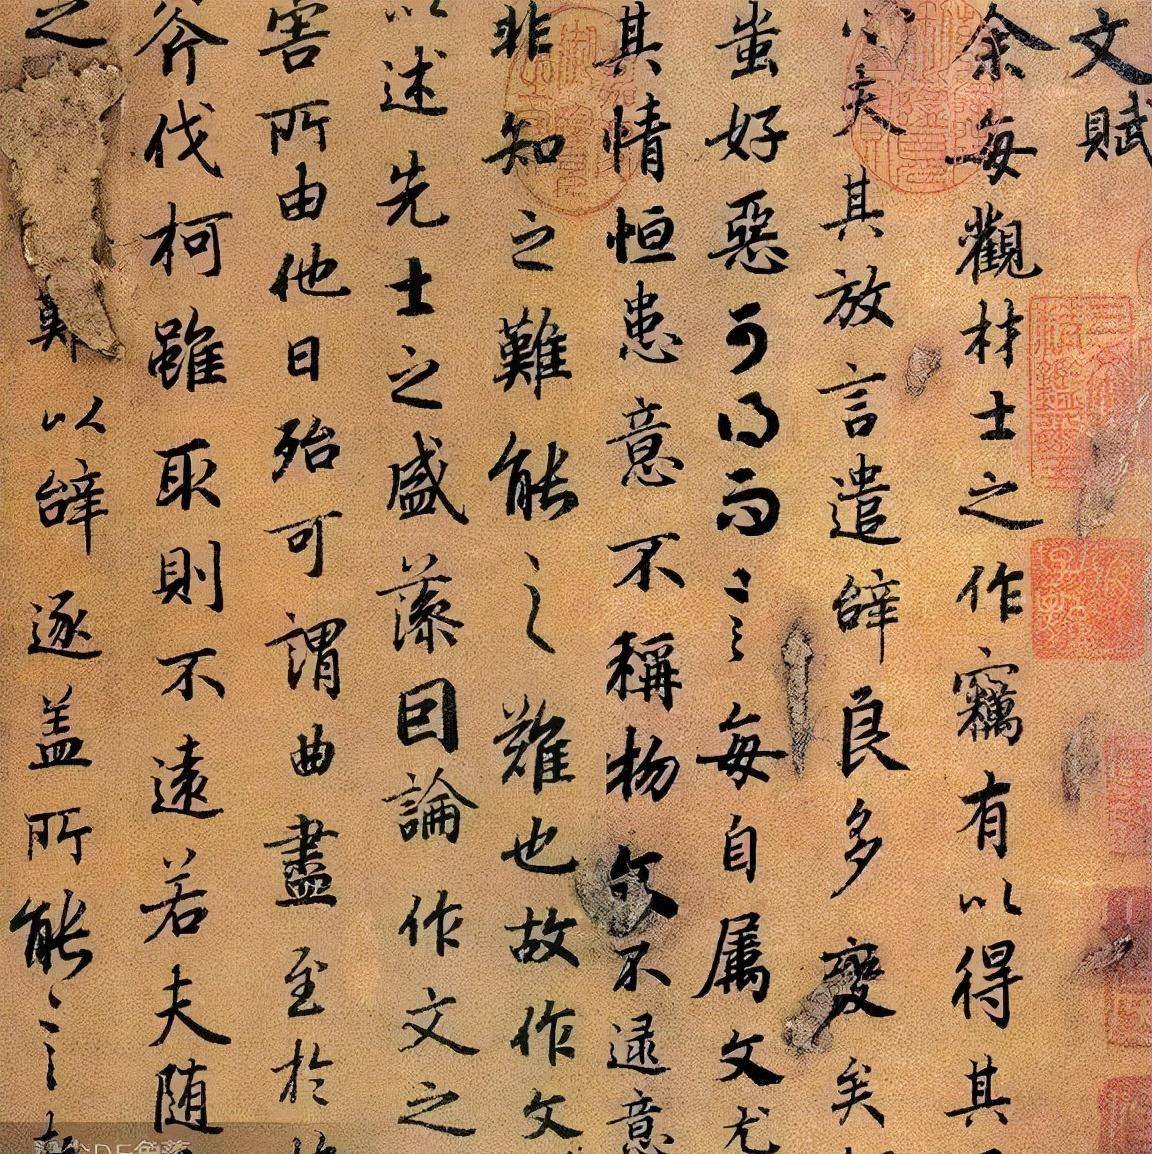 文賦
余每觀材士之作竊有以得其
心矣其放言遣辝良多變矣
蚩好惡可得而言每自属文尤
其情恒患意不稱物文不逮意
非知之難能之難也故作文
以述先士之盛藻因論作文之
害所由他日殆可謂曲盡至於
斧伐柯雖取則不遠若夫随
之以辝逐盖所能言